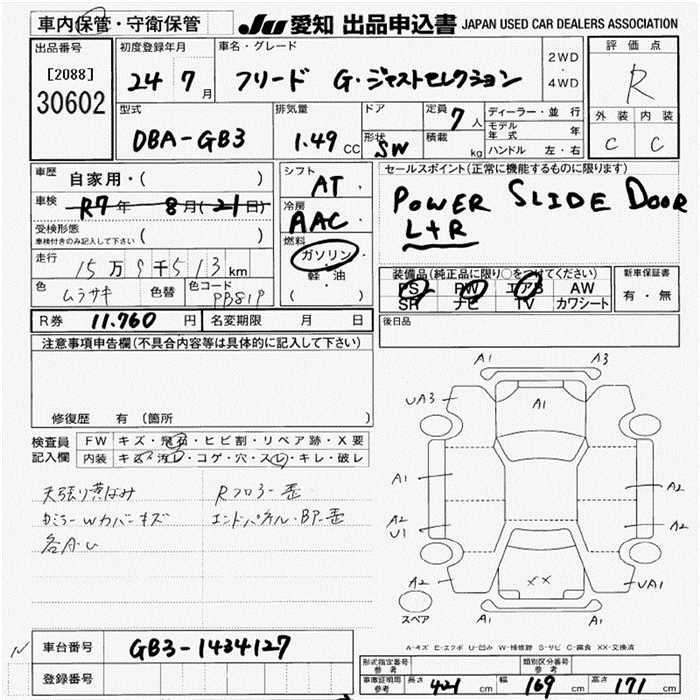 車内保管・守衛保管
JU 愛知 出品申込書 JAPAN USED CAR DEALERS ASSOCIATION
出品番号
[2088]
30602
初度登録年月
24 7月
車名・グレード
フリード G・ジャストセレクション
2WD
・
4WD
評価点
R
外装 内装
C C
型式
DBA-GB3
排気量
1.49 CC
ドア
形状
SW
定員
7人
積載
kg
ディーラー・並行
モデル年式 年
ハンドル 左・右
車歴
自家用・( )
車検
R7年 8月(21日)
受検形態
車検付きのみ記入して下さい ( )
走行
15万9千513km
色
ムラサキ
色替
色コード
PB81P
シフト
AT
冷房
AAC
燃料
ガソリン・
軽・油
( )
セールスポイント(正常に機能するものに限ります)
POWER SLIDE DOOR
L+R
装備品(純正品に限り○をつけてください)
PS PW エアB AW
SR ナビ TV カワシート
新車保証書
有・無
後日品
R券 11.760 円
名変期限 月 日
注意事項申告欄(不具合内容等は具体的に記入して下さい)
修復歴 有(箇所 )
検査員
記入欄
FW キズ・飛石・ヒビ割・リペア跡・X要
内装 キズ・汚レ・コゲ・穴・スレ・キレ・破レ
天張り黄ばみ
カミラーWカバーキズ
各A・U
Rフロアー歪
エンドパネル・BP-歪
A1 A3
UA3
A1
A1
A2
A2
U1
A2
A2
XX
UA1
A1 A1
スペア
A-キズ E-エクボ U-凹み W-補修跡 S-サビ C-腐食 XX-交換済
N
車台番号
GB3-1434127
登録番号
形式指定番号
参考
類別区分番号
参考
車庫証明用
参考
長さ 421 cm
幅 169 cm
高さ 171 cm